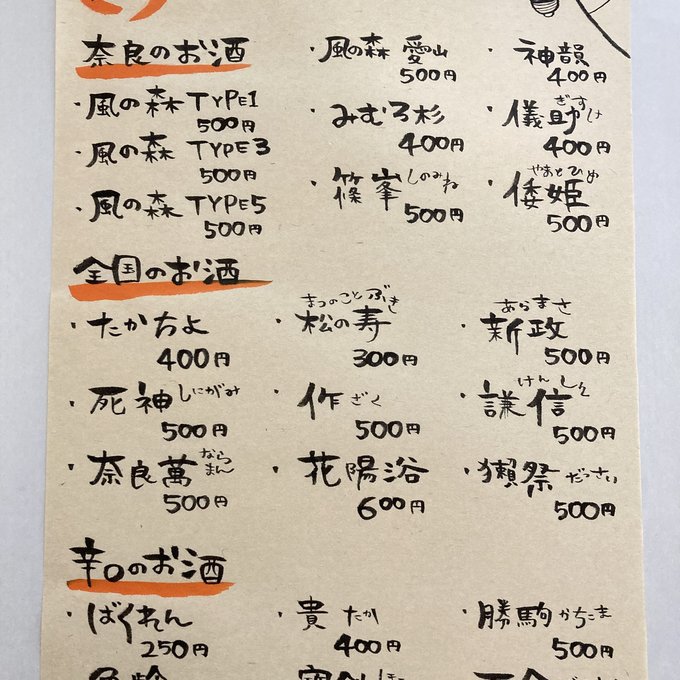 奈良のお酒
・風の森 TYPE1
500円
・風の森 TYPE3
500円
・風の森 TYPE5
500円
・風の森 愛山
500円
・みむろ杉
400円
・篠峯 しのみね
500円
・神韻
400円
・儀助 ぎすけ
400円
・倭姫 やまとひめ
500円
全国のお酒
・たかちよ
400円
・死神 しにがみ
500円
・奈良萬 ならまん
500円
・松の寿 まつのことぶき
300円
・作 ざく
500円
・花陽浴
600円
・新政 あらまさ
500円
・謙信 けんしん
500円
・獺祭 だっさい
500円
辛口のお酒
・ばくれん
250円
・貴 たか
400円
・勝駒 かちこま
500円